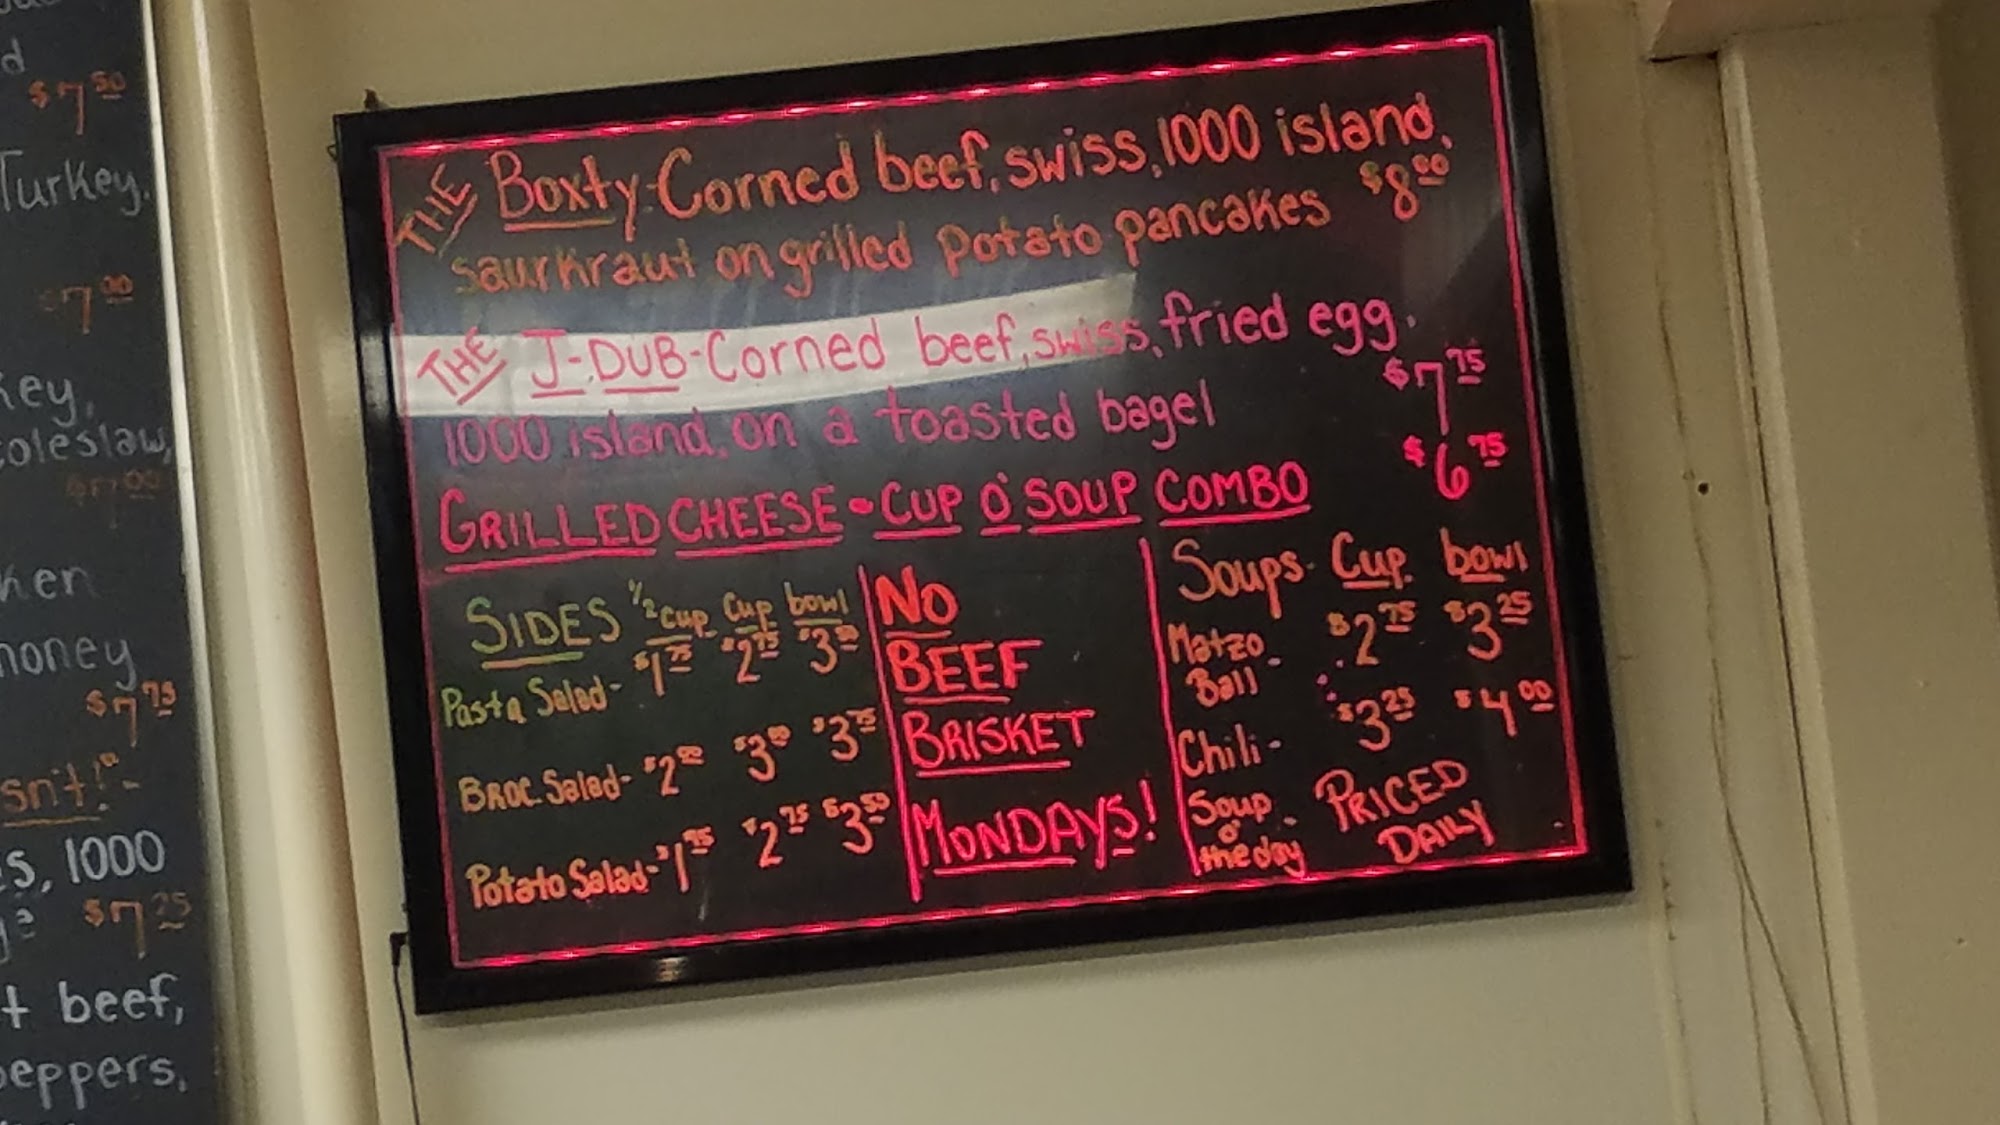 d
$7.50
Turkey.
$7.00
Key,
coleslaw,
$7.00
Ken
honey
$7.75
snt!"-
s, 1000
$7.25
t beef,
peppers,
THE Boxty-Corned beef, swiss, 1000 island,
saurkraut on grilled potato pancakes $8.00
THE J-DUB-Corned beef, swiss, fried egg.
1000 island, on a toasted bagel $7.75
GRILLED CHEESE - CUP O' SOUP COMBO $6.75
SIDES 1/2 cup Cup bowl
Pasta Salad- $1.75 $2.75 $3.50
BROC. Salad- $2.00 $3.00 $3.75
Potato Salad- $1.75 $2.75 $3.50
NO
BEEF
BRISKET
MONDAYS!
Soups- Cup bowl
Matzo
Ball - $2.75 $3.25
Chili- $3.25 $4.00
Soup
o'
the day - PRICED
DAILY